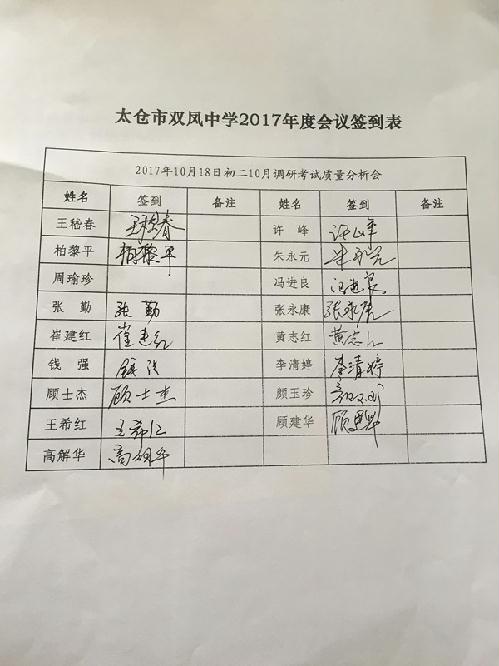 太仓市双凤中学2017年度会议签到表
2017年10月18日初二10月调研考试质量分析会
姓名 签到 备注 姓名 签到 备注
王嵇春 王嵇春 许 峰 许山峰
柏黎平 柏黎平 朱永元 朱永元
周瑜珍 冯进良 冯进良
张 勤 张勤 张永康 张永康
崔建红 崔建红 黄志红 黄志红
钱 强 钱强 李清婷 李清婷
顾士杰 顾士杰 颜玉珍
王希红 王希红 顾建华 顾建华
高解华 高解华